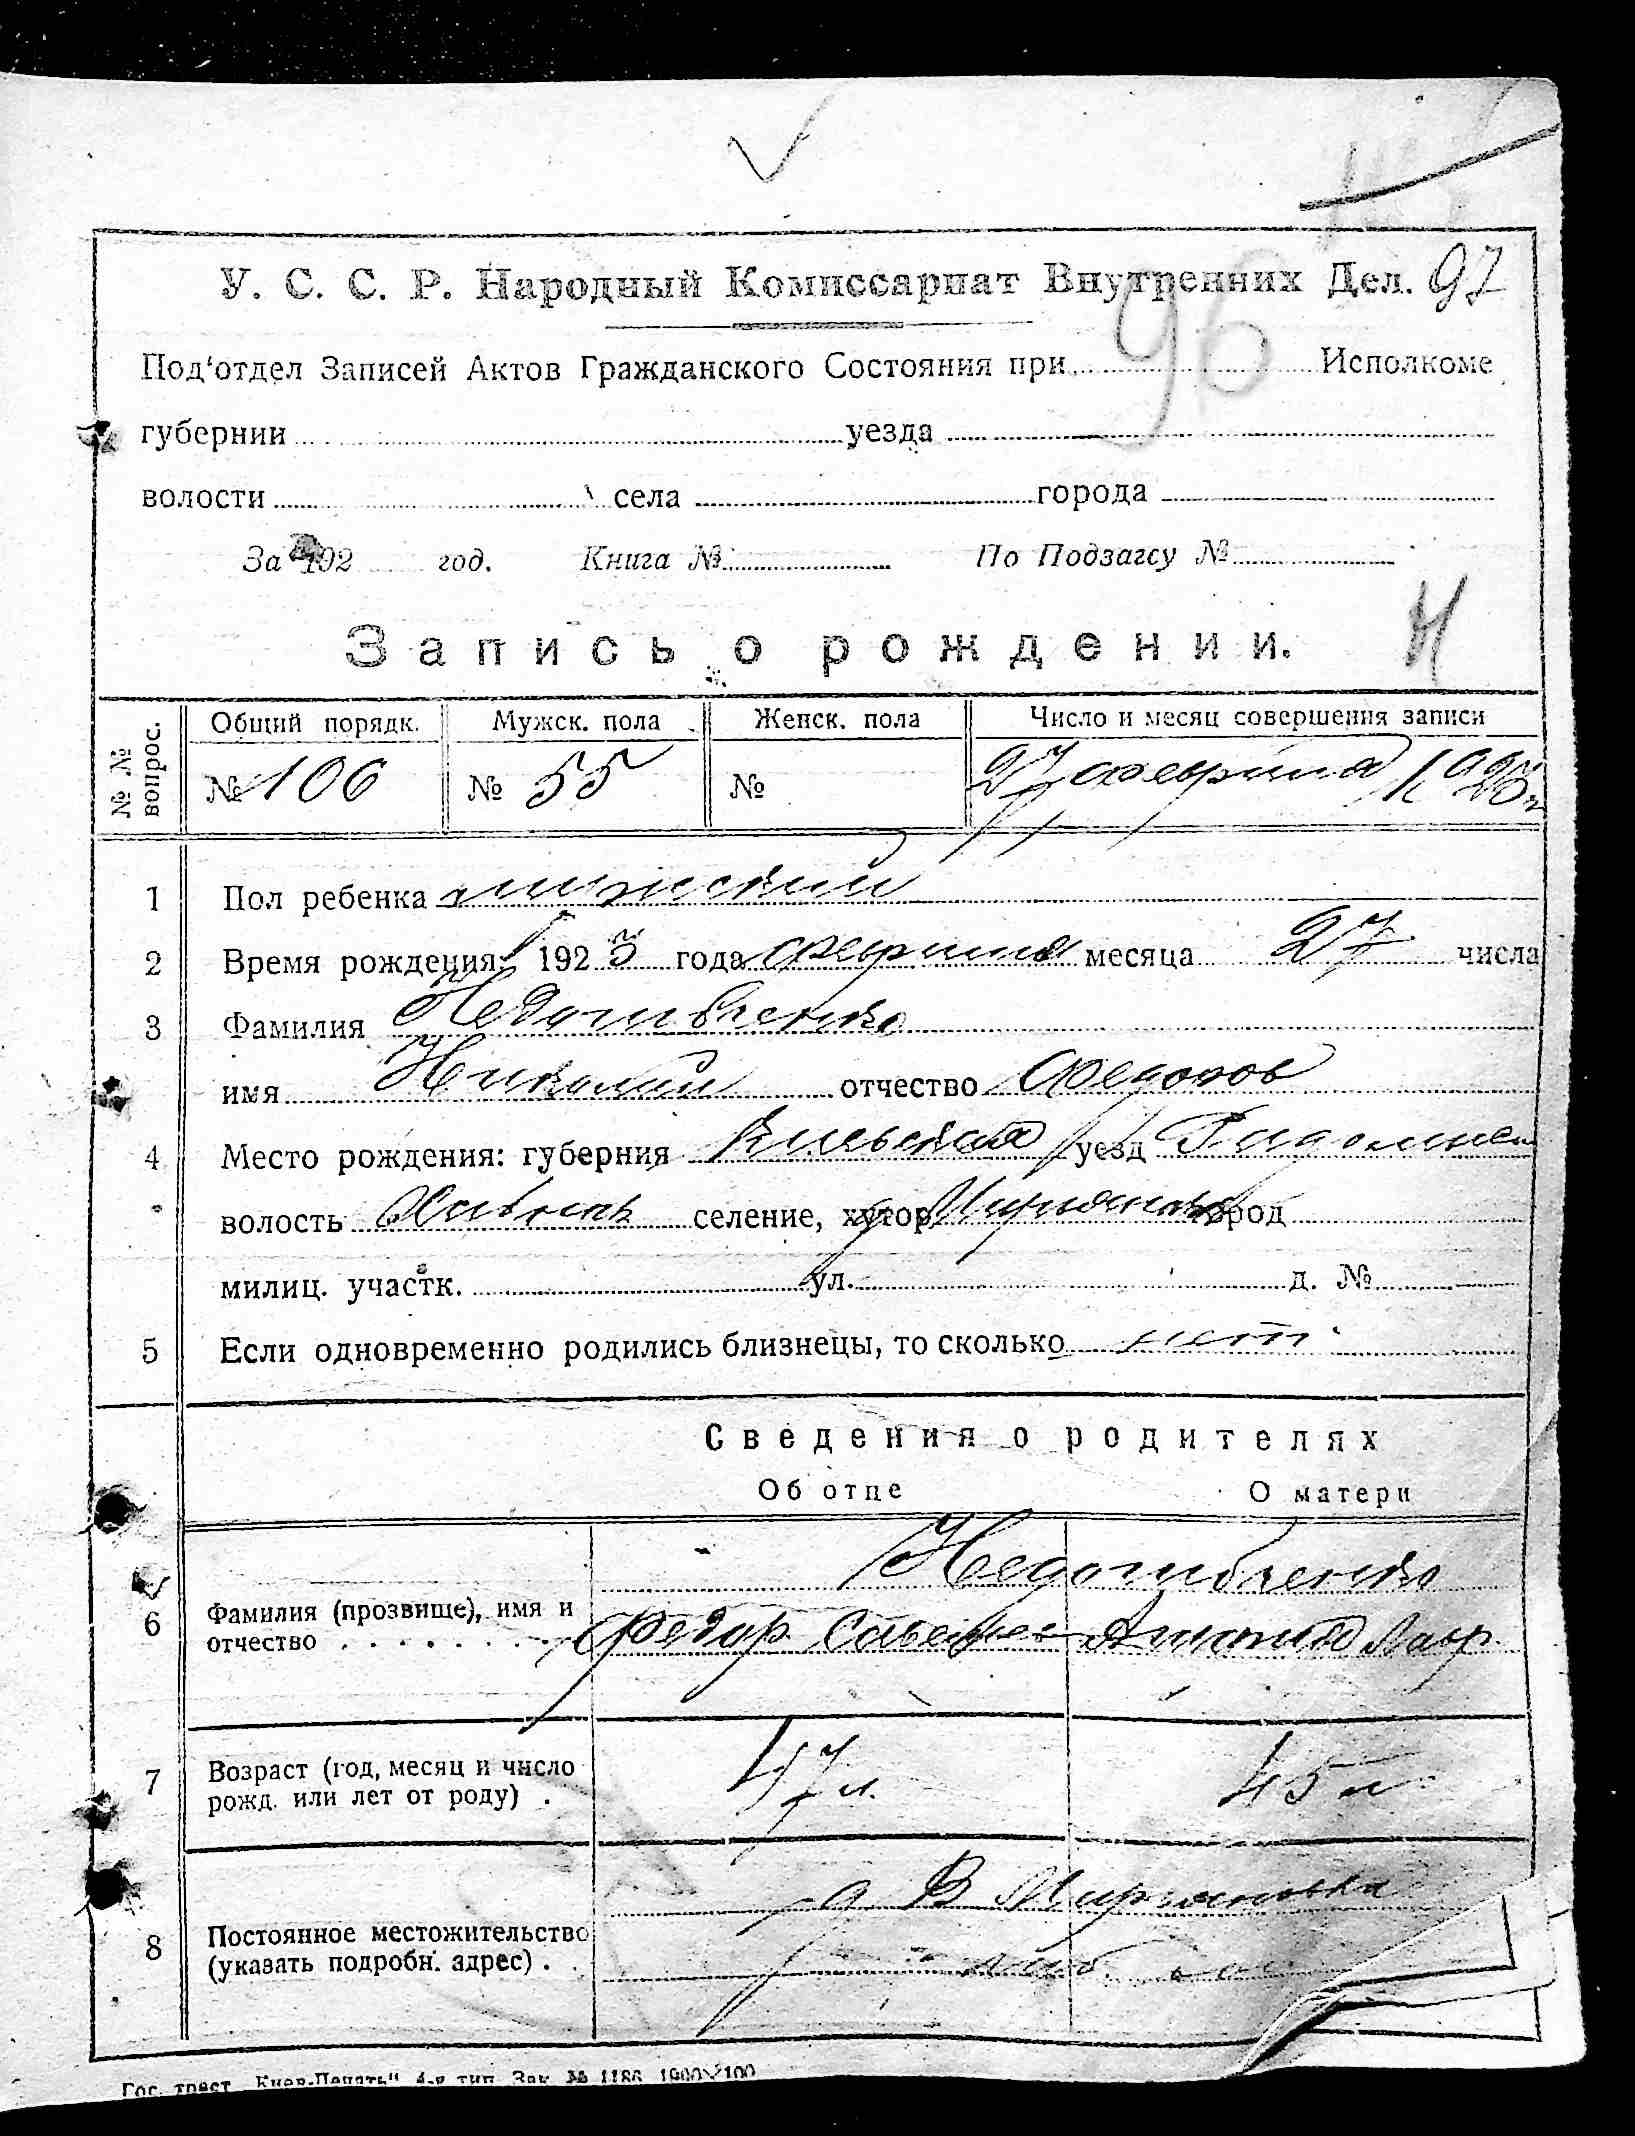 97
У. С. С. Р. Народный Комиссариат Внутренних Дел.
96
Под‘отдел Записей Актов Гражданского Состояния при Исполкоме
губернии уезда
волости села города
За 192 год. Книга № По Подзагсу №
Запись о рождении.
№№ вопрос. Общий порядк. Мужск. пола Женск. пола Число и месяц совершения записи
№ 106 № 55 № 27 февраля 1923 г
1 Пол ребенка мужский
2 Время рождения: 1923 года февраля месяца 27 числа
3 Фамилия
имя Николай отчество Федоров
4 Место рождения: губерния Киевская уезд
волость селение, хутор город
милиц. участк. ул. д. №
5 Если одновременно родились близнецы, то сколько нет
Сведения о родителях
Об отце О матери
6 Фамилия (прозвище), имя и
отчество Федор Лавр.
7 Возраст (год, месяц и число
рожд. или лет от роду) . 47 л. 45 л
8 Постоянное местожительство
(указать подробн. адрес) . .
Гос. трест „Киев-Печать“ 4-я тип. Зак. № 1186 1900×100